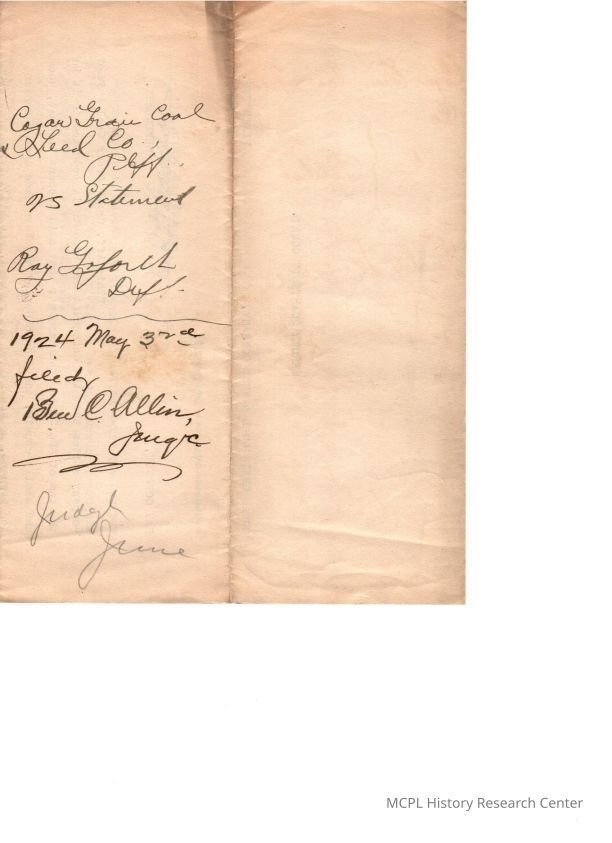 Cogar Grain Coal
& Seed Co.,
Plff.
vs Statement
Ray Goforth
Def.
1924 May 3rd
filed
Ben C Allin,
Judgt
June
MCPL History Research Center